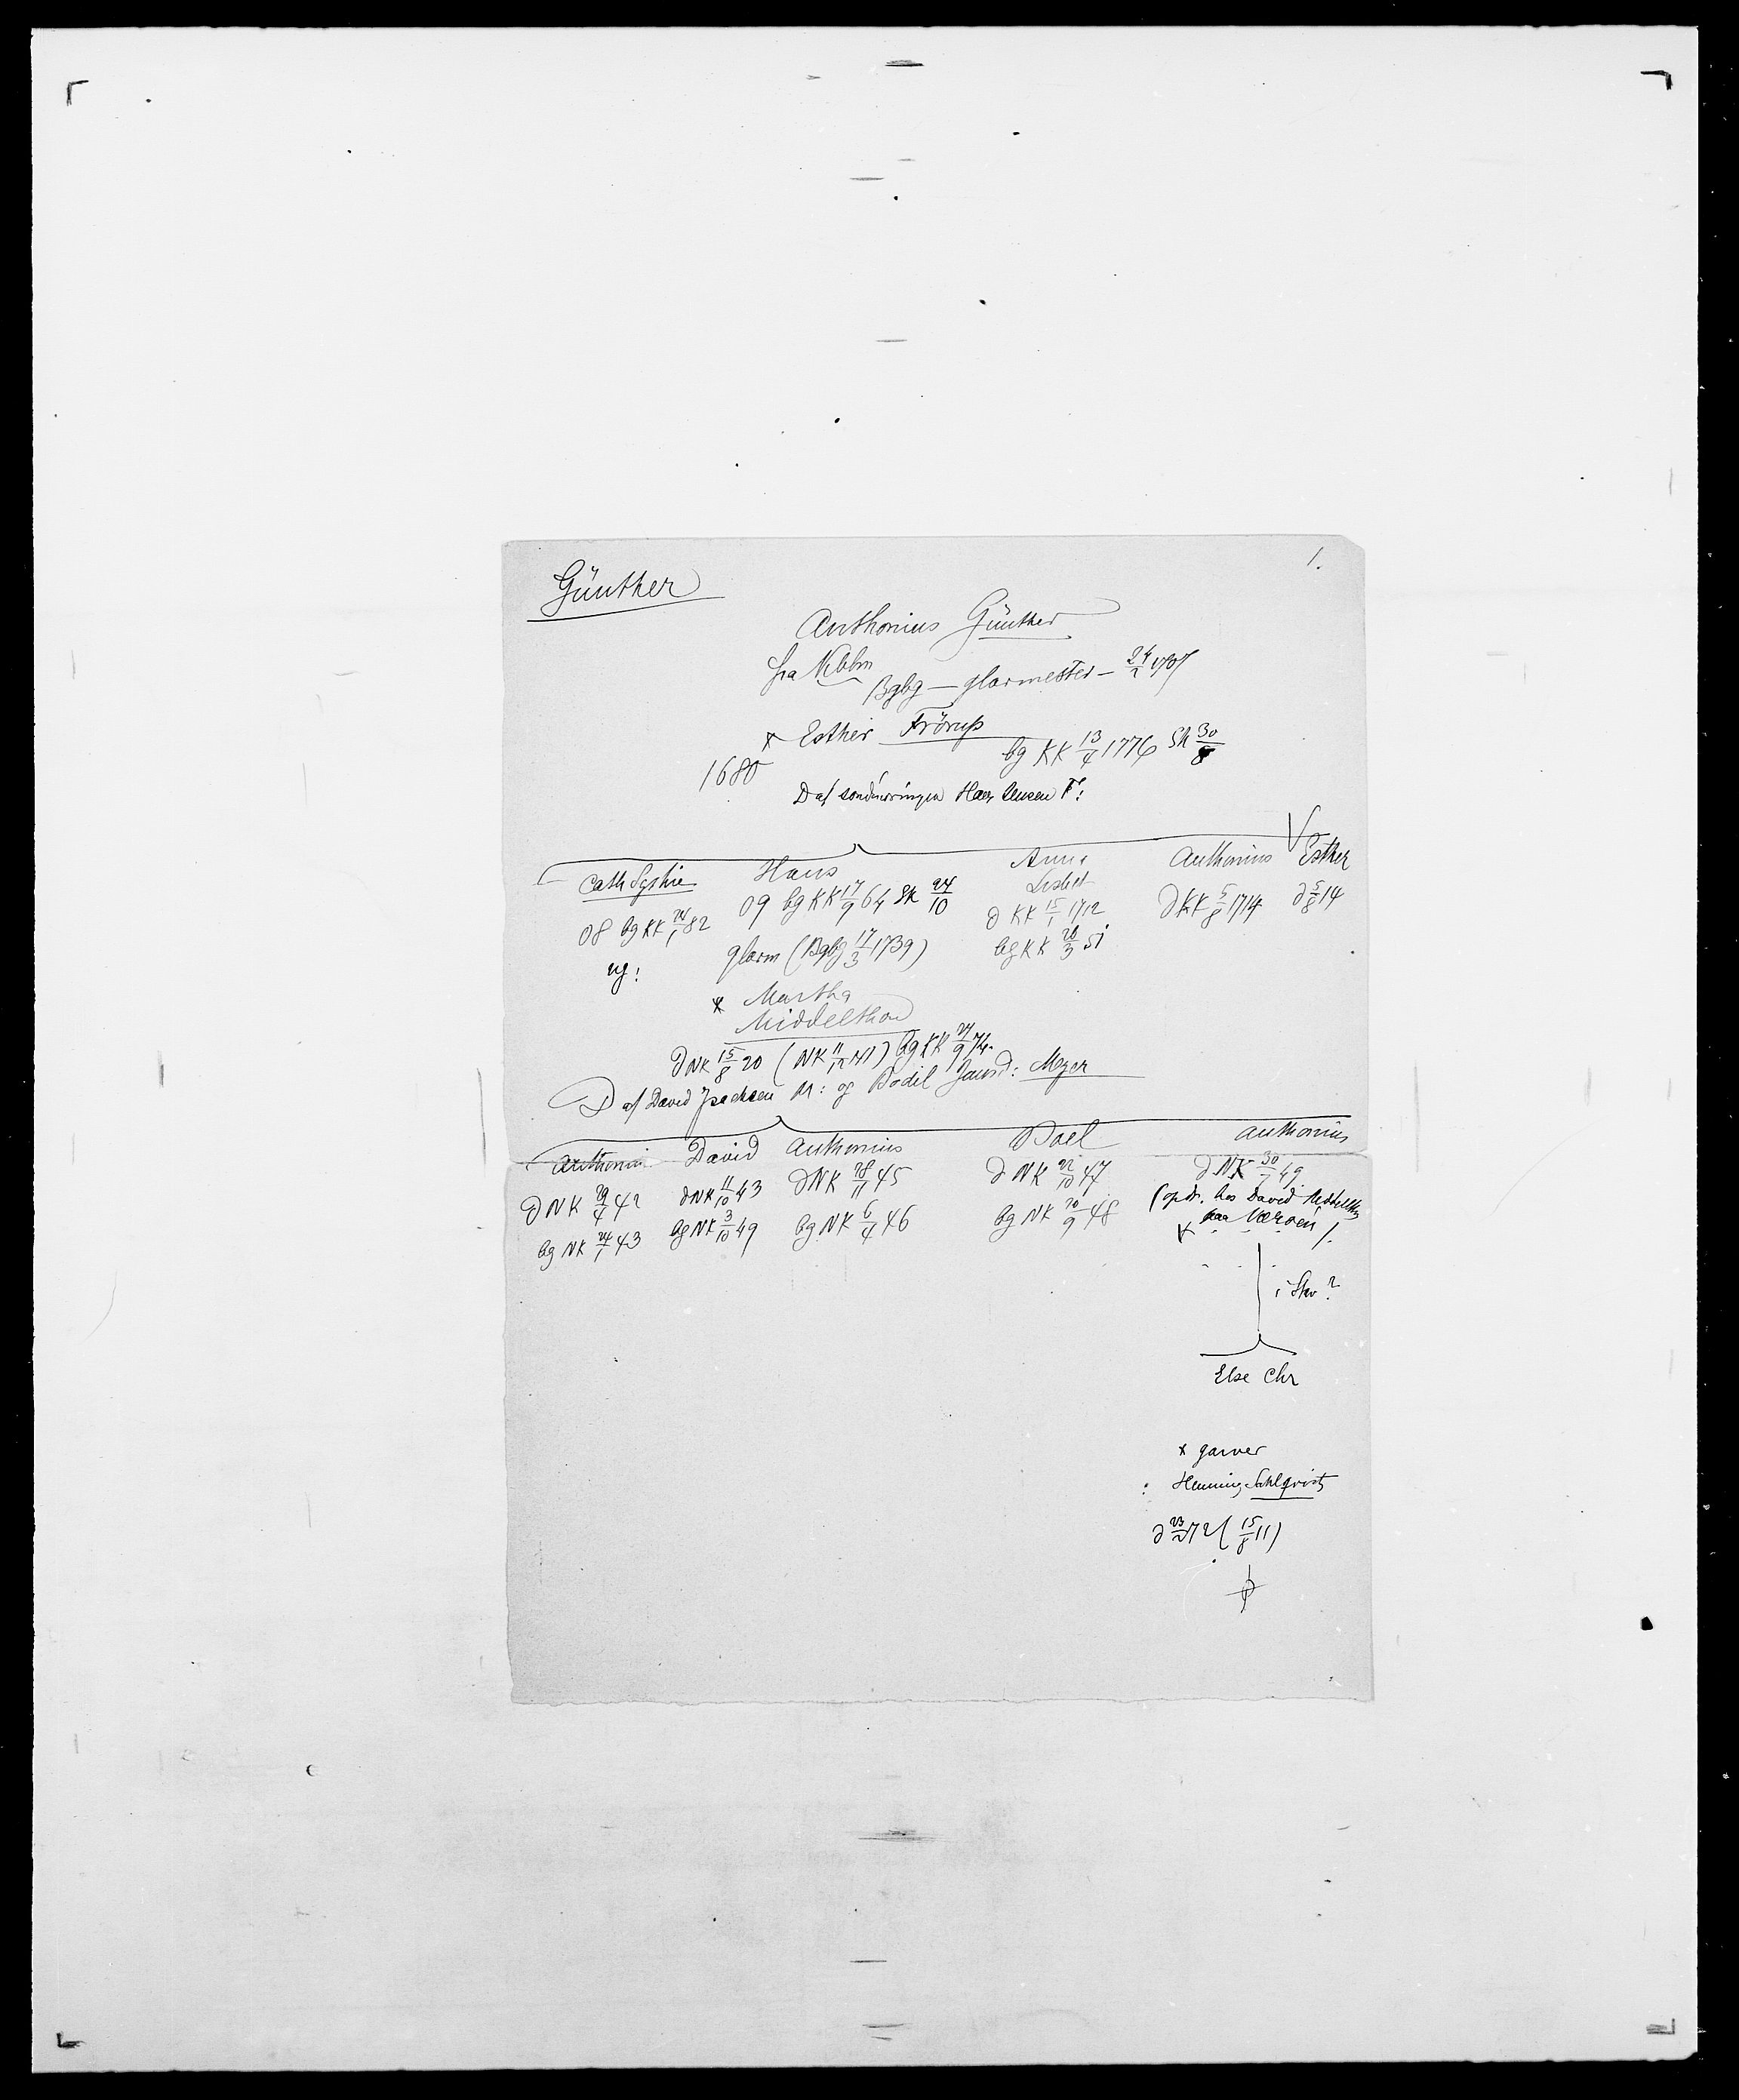 1.
Günther
Anthonius Günther
fra Kbhn
Bgbg — glarmester — 24/2 1707
* Esther Frörup
1680 bg KK 13/4 1776 Sk 30/8
D af Hans Jensen F:
Cath Sophie Hans Anne Anthonius Esther
Lisbet
08 bg KK 24/1 82 09 bg KK 17/9 64 Sk 24/10 d KK 15/1 1712 d KK 5/8 1714 d 5/8 14
ug: glarm (Bgbg 17/3 1739) bg KK 26/3 51
* Martha
Middelthon
d NK 15/8 20 (NK 11/12 41) bg KK 24/9 74
D af David Jsachsen M: og Bodil Jansd: Meyer
Anthoni David Anthonius Boel Anthonius
d NK 29/4 42 d NK 11/10 43 d NK 28/11 45 d NK 22/10 47 d NK 30/7 49
bg NK 24/1 43 bg NK 3/10 49 bg NK 6/4 46 bg NK 20/9 48 (opdr. hos David
paa Værøen)
*
i Stav?
Else Chr
* garver
Henning Sahlqvist
d 23/2 72 (15/8 11)